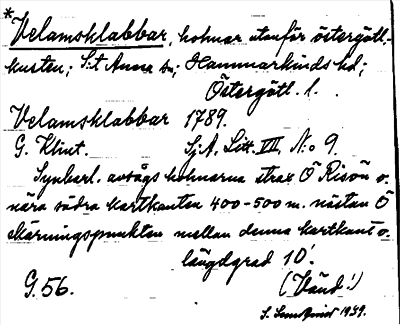 *Velamsklabbar, holmar utanför östergötl.-
kusten; S:t Anna sn; Hammarkinds hd;
Östergötl. l.
Velamsklabbar 1789.
G. Klint. Sj.A. Litt. VIII, No 9.
Synbarl. avsågs holmarna strax Ö Risön o.
nära södra kartkanten 400-500 m. nästan Ö
skärningspunkten mellan denna kartkant o.
längdgrad 10'.
G. 56. (Vänd!)
S. 1939.